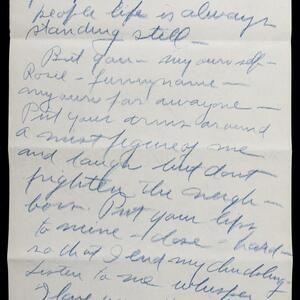 people life is always
standing still —
But you — my own self —
Rosie — funny name —
my own for anyone —
Put your arms around
a mist figure of me
and laugh but dont
frighten the neigh-
bors. Put your lips
to mine — close — hard —
so that I end my chuckling.
Listen to me whisper
I love you